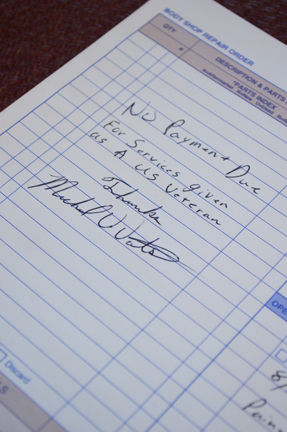 BODY SHOP REPAIR ORDER
QTY
DESCRIPTION & PARTS
*PARTS INDEX
No Payment Due
For Services given
as A US Veteran
Thanks
OPE
8/
Discard
LS